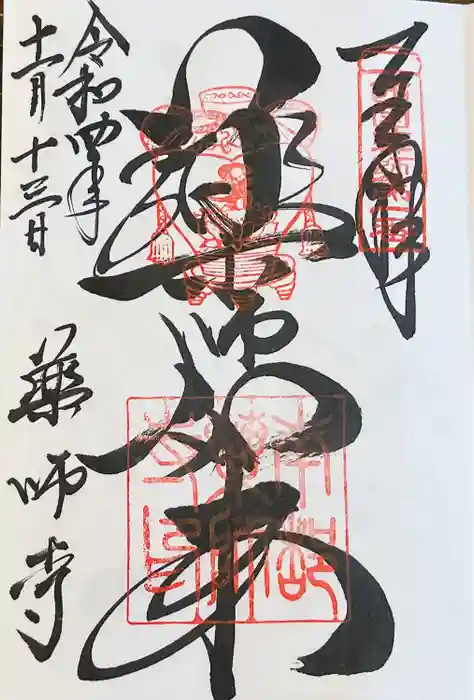 奉拝
薬師如来
令和四年
十二月十三日
薬師寺